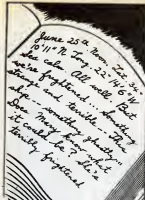 June 25th Noon, Lat. 36-
10'11" N. Long. 22-14'6" W
Sea calm. All well. But
we're frightened... something
strange and terrible... on the
ship... something ghastly"
Dear Mary
it could be? She's
terribly frightened